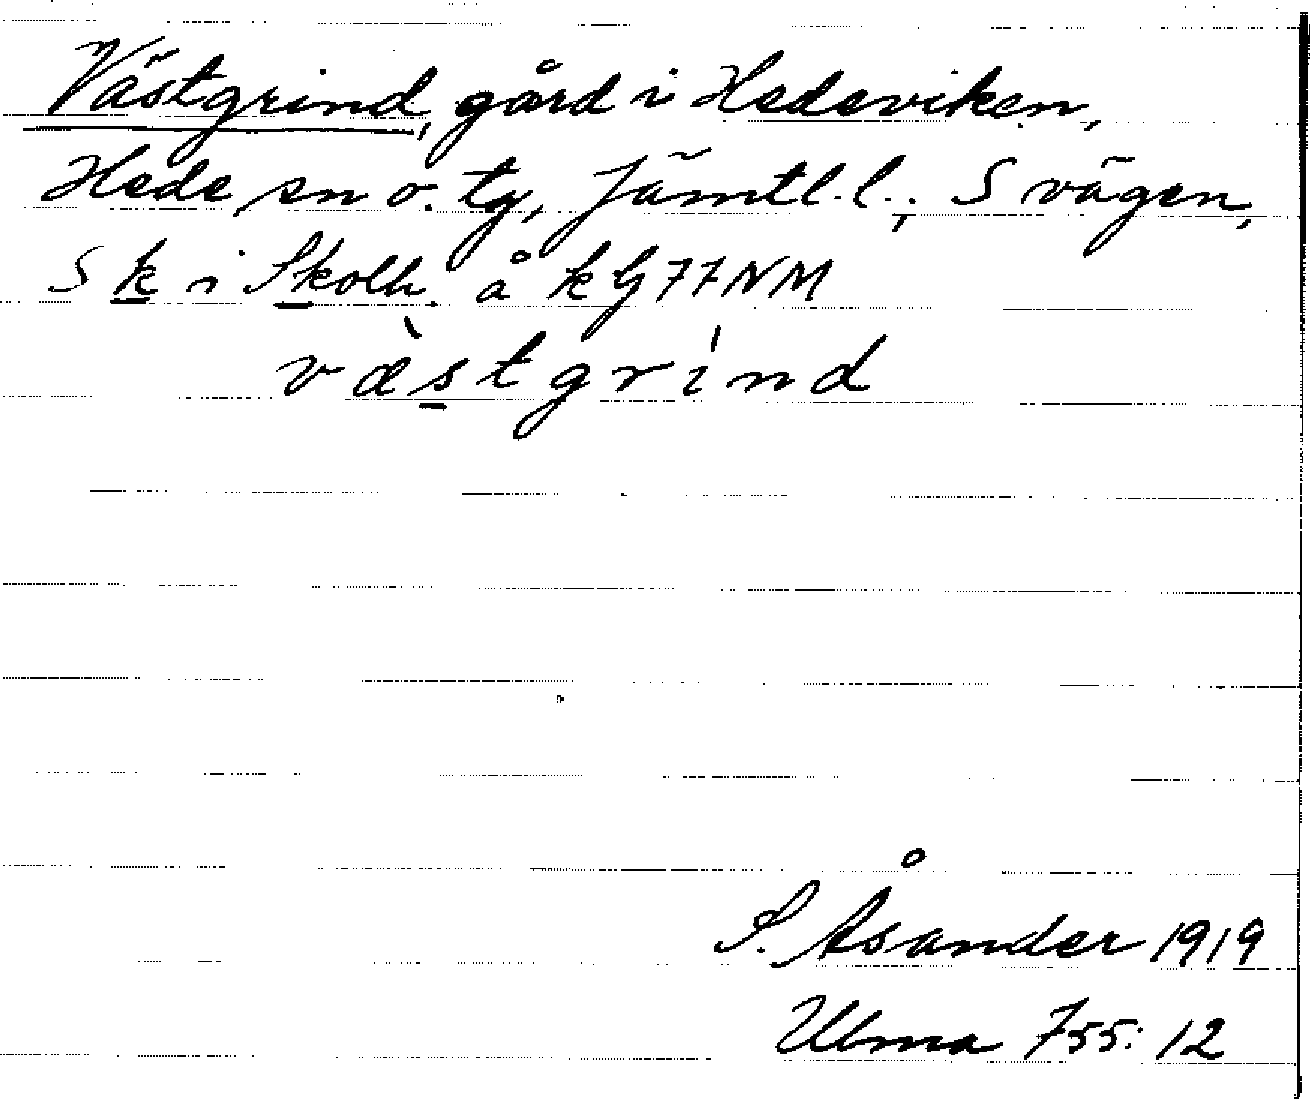 Västgrind, gård i Hedeviken,
Hede sn o. tg, Jämtl. l.; S vägen,
S k i Skolh. å kG77NM
væ̀stgrínd
S. Åsander 1919
Ulma 755:12